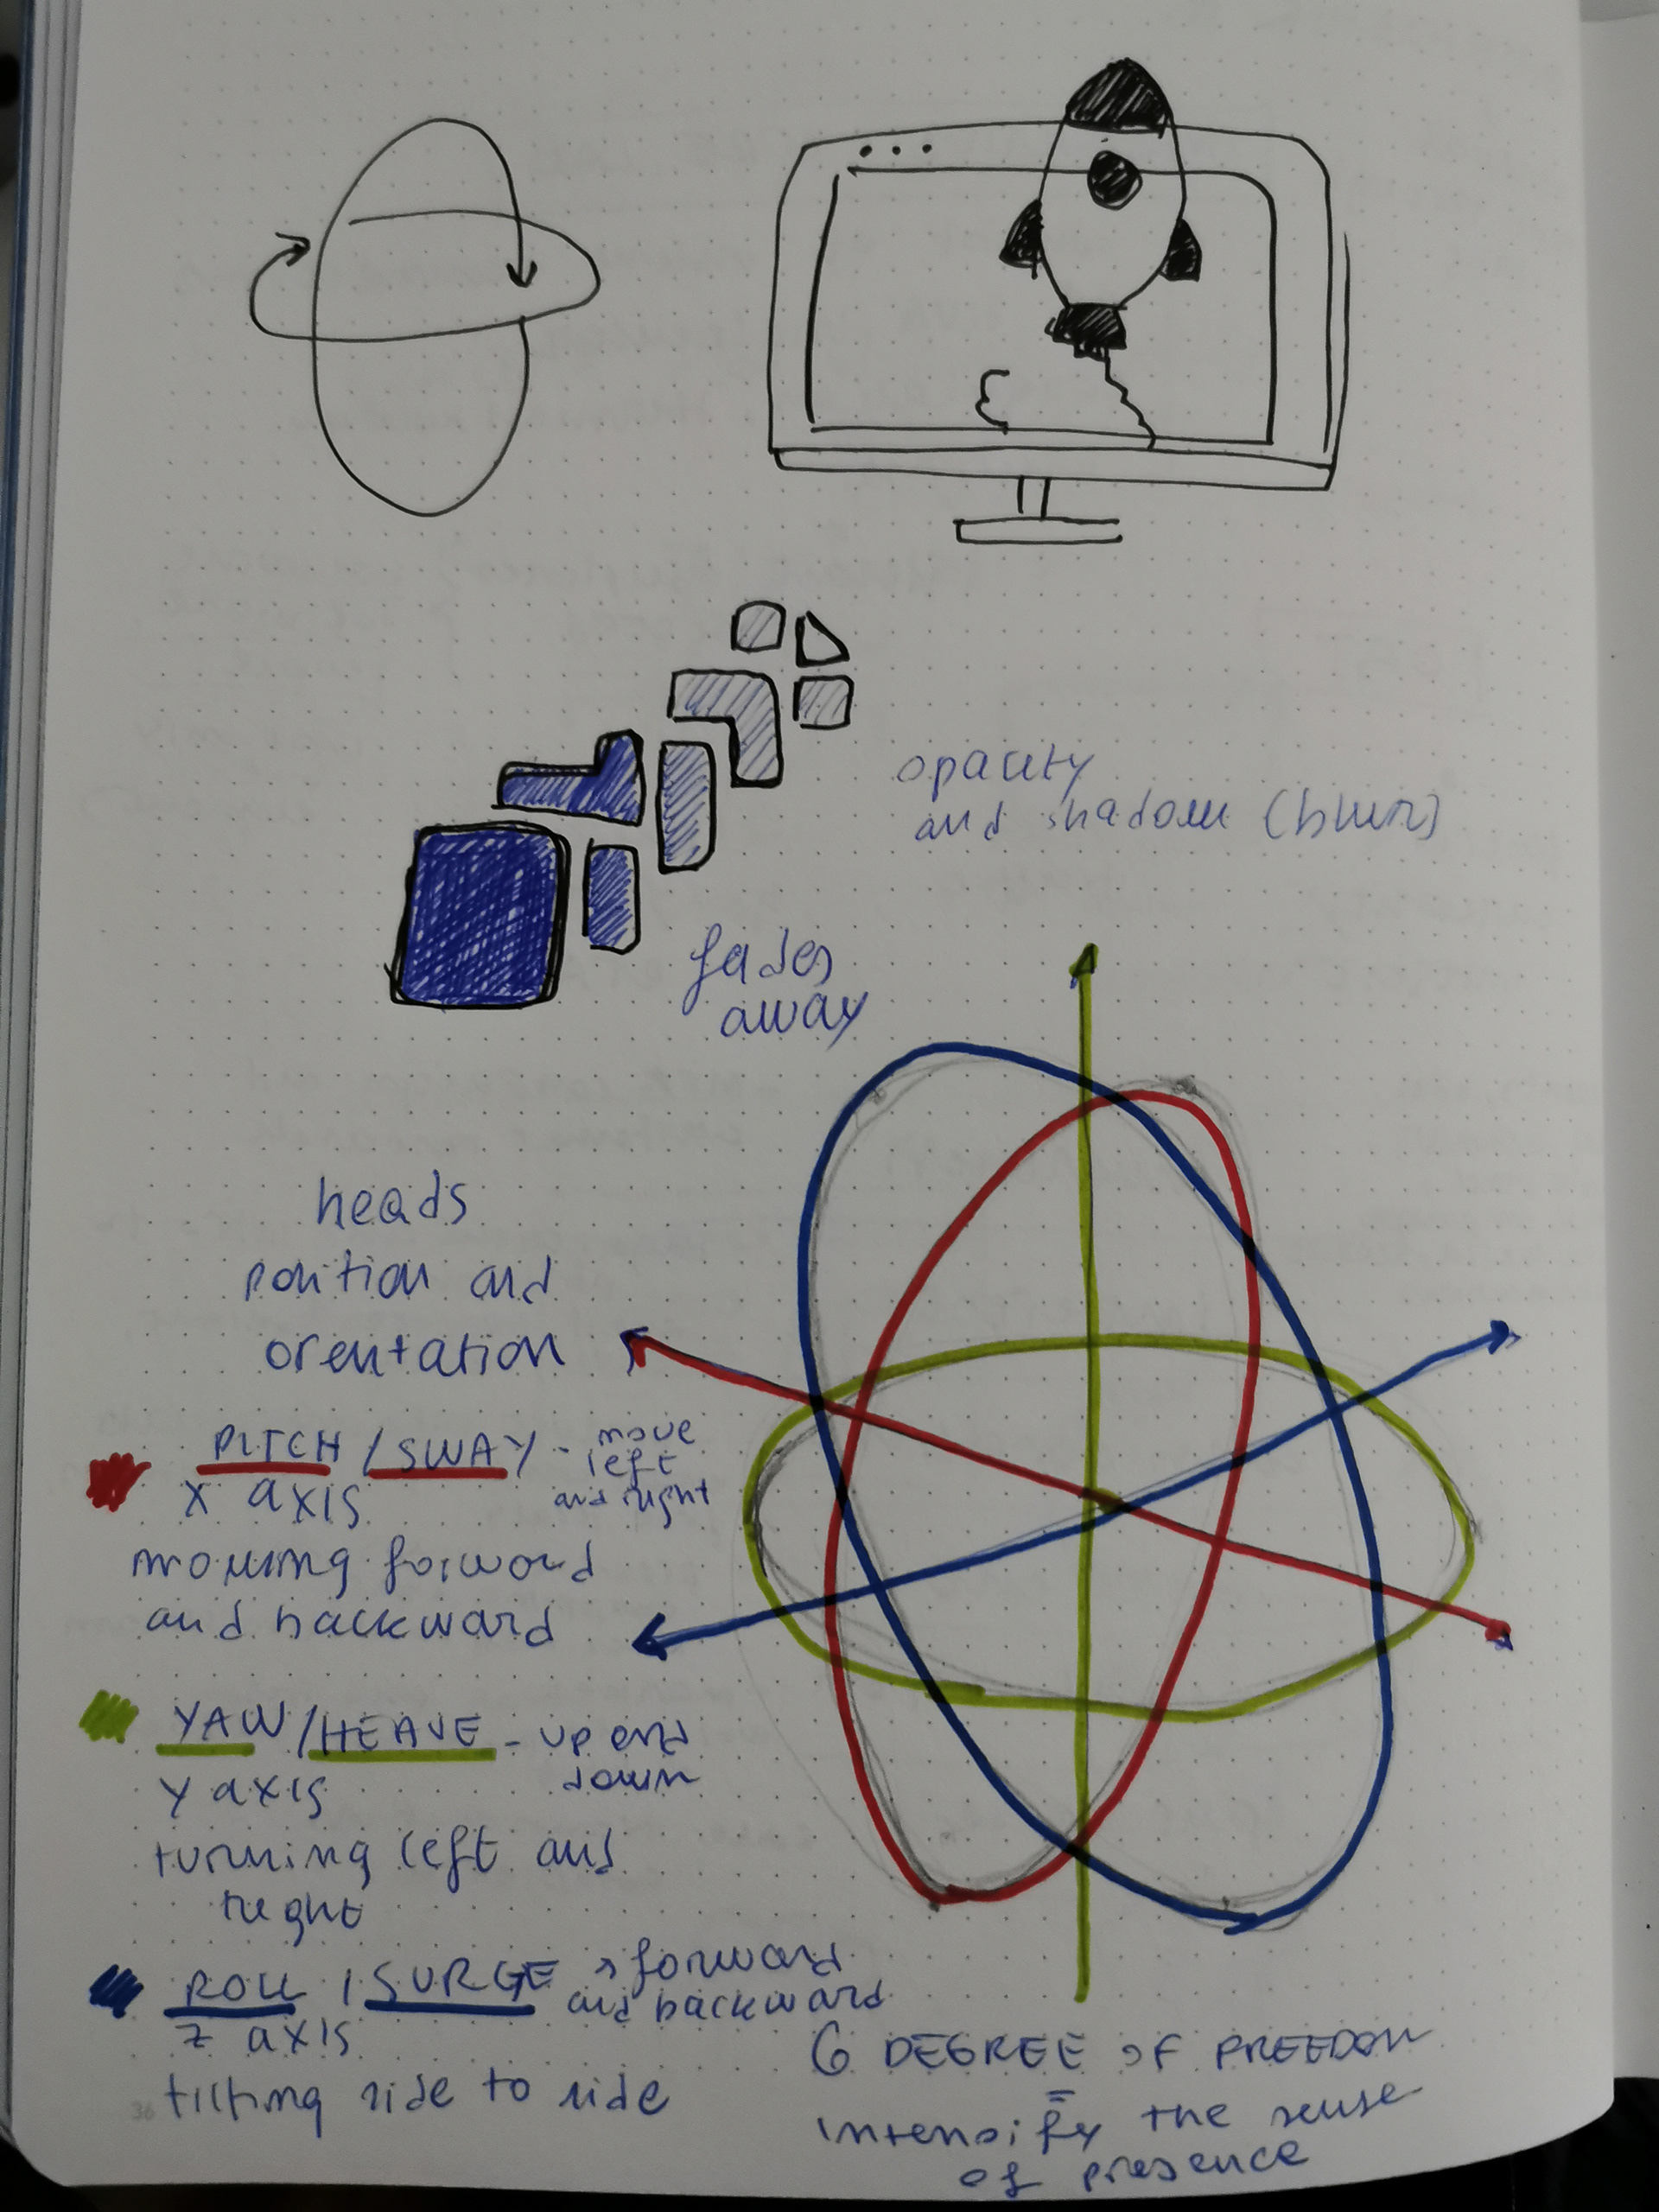 opacity
and shadow (blur)
fades
away
heads
position and
orientation
PITCH / SWAY - move
left
and right
x axis
moving forword
and backward
YAW / HEAVE - up and
down
y axis
turning left and
right
ROLL / SURGE → forward
and backward
z axis
tilting side to side
6 DEGREE OF FREEDOM
=
intensify the sense
of presence
36